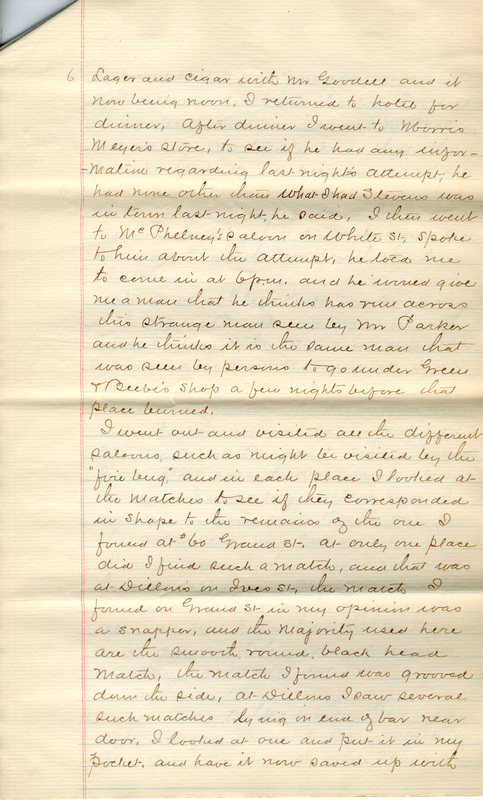 6 Lager and cigar with Mr Goodell and it
now being noon, I returned to hotel for
dinner, After dinner I went to Morris
Meyer's store, to see if he had any infor-
-mation regarding last night's attempt, he
had none other than what I had Stevens was
in town last night, he said, I then went
to McPhelney's saloon on White St, Spoke
to him about the attempt, he told me
to come in at 6 p.m. and he would give
me a man that he thinks has run across
this strange man seen by Mr Parker
and he thinks it is the same man that
was seen by persons to go under Green
& Beebe's shop a few nights before that
place burned.
I went out and visited all the different
saloons, such as might be visited by the
"fire bug," and in each place I looked at
the matches to see if they corresponded
in shape to the remains of the one I
found at # 60 Grand St. at only one place
did I find such a match, and that was
at Dillons on Ives St, the match I
found on Grand St in my opinion was
a snapper, and the majority used here
are the smooth, round, black head
match, the match I found was grooved
down the side, at Dillons I saw several
such matches lying on end of bar near
door, I looked at one and put it in my
pocket, and have it now saved up with